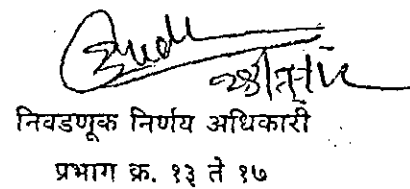 निवडणूक निर्णय अधिकारी
प्रभाग क्र. १३ ते १७